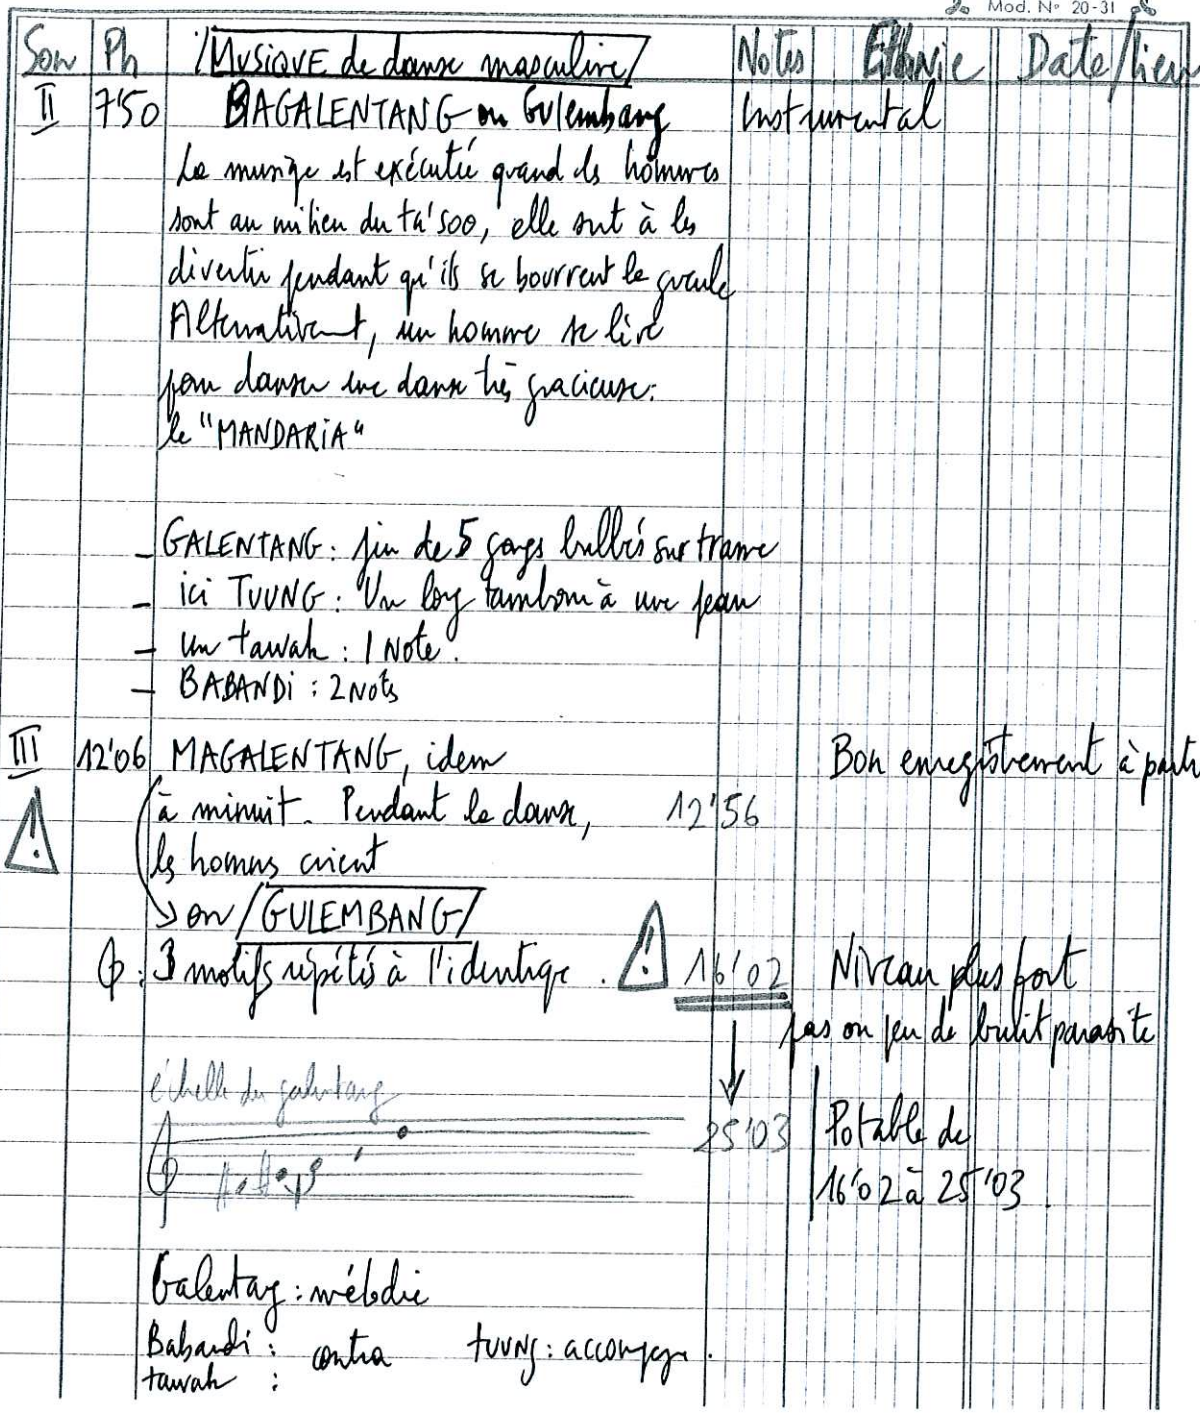 Mod. N° 20-31
Son Ph /MUSIQUE de danse masculine/ Notes Ethnie Date/lieu
II 7'50 BAGALENTANG ou Gulembang Instrumental
La musiqe est exécutée quand ls hommes
sont au milieu du ta'soo, elle sert à les
divertir pendant qu'ils se bourrent la gueule
Alternativent, un homme se lève
pour danser une danse très gracieuse:
le "MANDARIA"
- GALENTANG: jeu de 5 gongs bulbés sur trame
- ici TUUNG: Un long tambour à une peau
- un tawak: 1 Note.
- BABANDI: 2 Nots
III 12'06 MAGALENTANG, idem Bon enregistrement à partir
à minuit. Pendant la danse, 12'56
les hommes crient
→ ou /GULEMBANG/
3 motifs répétés à l'identiqe. 16'02 Niveau plus fort
pas ou peu de bruit parasite
échelle du galentang
25'03 Potable de
16'02 à 25'03.
Galentang: mélodie
Babandi: contra tuung: accompgn.
tawak: